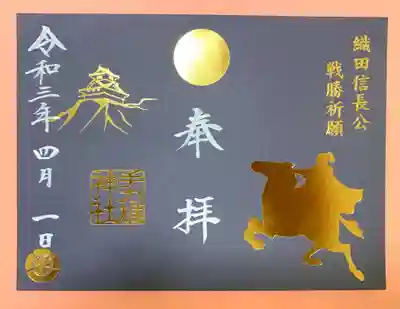 織田信長公
戦勝祈願
奉拝
神社
令和三年四月一日